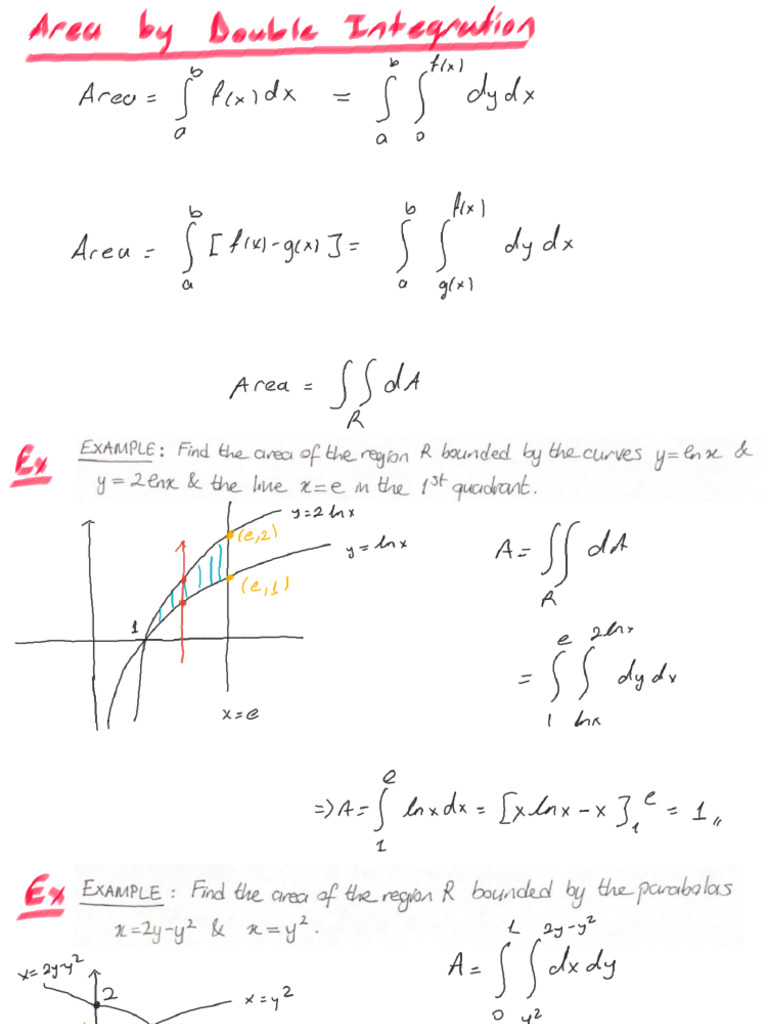 Area by Double Integration
Area = ∫_a^b f(x)dx = ∫_a^b ∫_0^{f(x)} dydx
Area = ∫_a^b [f(x)-g(x)] = ∫_a^b ∫_{g(x)}^{f(x)} dydx
Area = ∬_R dA
Ex EXAMPLE: Find the area of the region R bounded by the curves y=lnx &
y=2lnx & the line x=e in the 1st quadrant.
y=2lnx
(e,2)
y=lnx
(e,1)
1
x=e
A=∬_R dA
= ∫_1^e ∫_{lnx}^{2lnx} dydx
=> A= ∫_1^e lnxdx = [xlnx-x]_1^e = 1,,
Ex EXAMPLE: Find the area of the region R bounded by the parabolas
x=2y-y² & x=y².
x=2y-y²
2
x=y²
A= ∫_0^1 ∫_{y²}^{2y-y²} dxdy